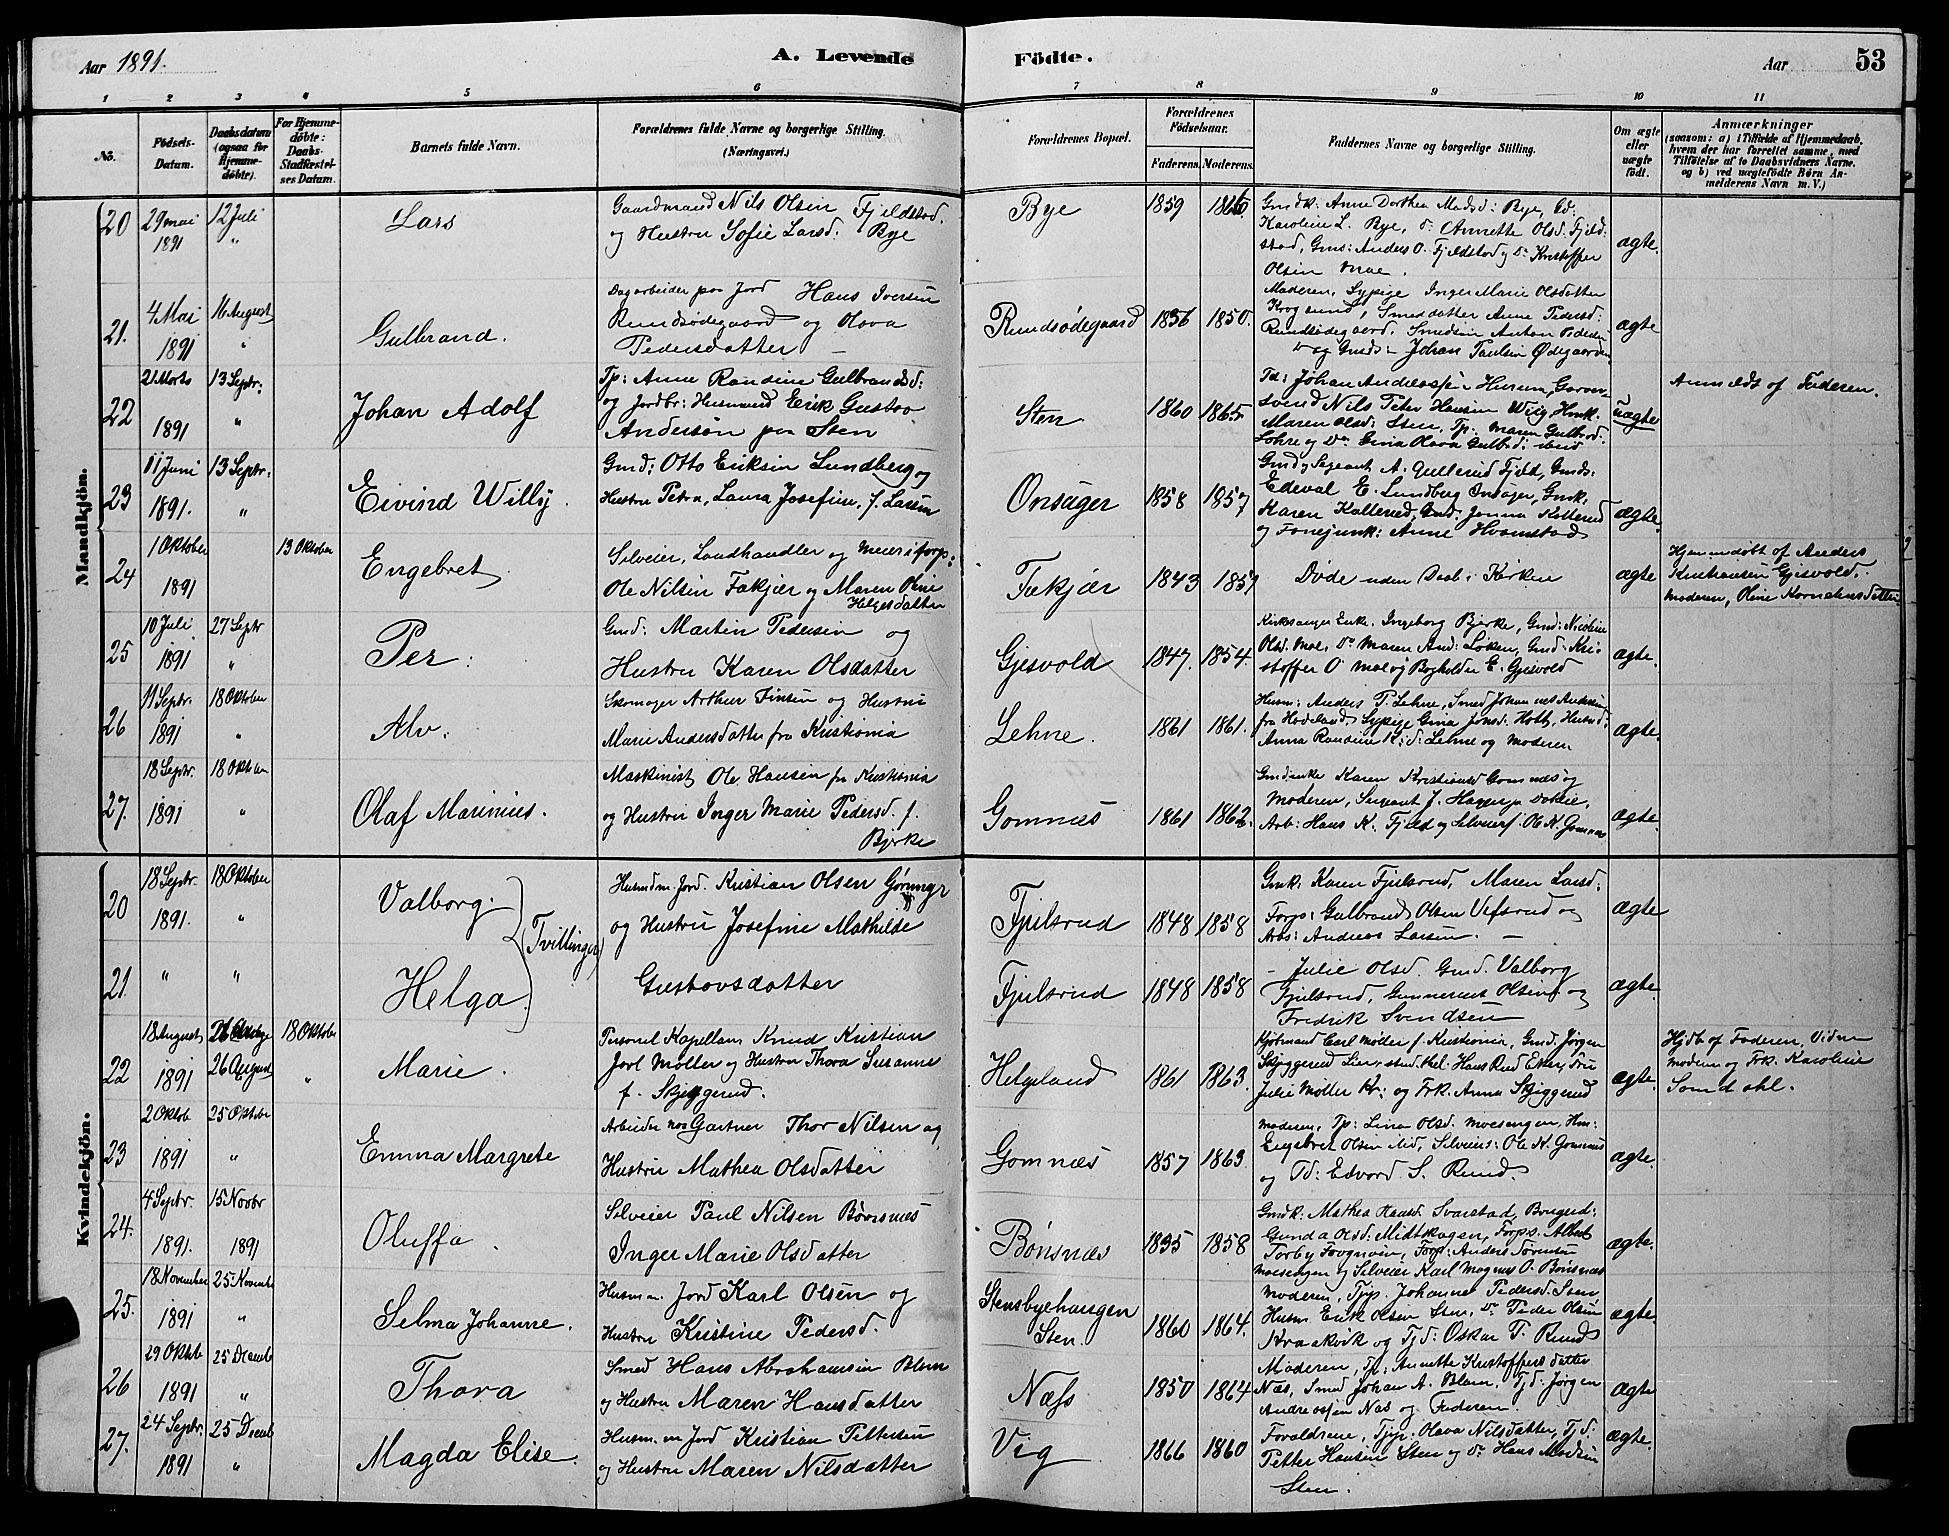 Aar 1891.
A. Levende Födte.
Aar
53
1 2 3 4 5 6 7 8 9 10 11
No.
Födsels-
Datum.
Daabsdatum
(ogsaa for
Hjemme-
döbte).
For Hjemme-
döbte:
Daabs-
Stadfæstel-
ses Datum.
Barnets fulde Navn.
Forældrenes fulde Navne og borgerlige Stilling.
(Næringsvei.)
Forældrenes Bopæl.
Forældrenes
Födselsaar.
Faderens. Moderens.
Faddernes Navne og borgerlige Stilling.
Om ægte
eller
uægte
födt.
Anmærkninger
(saasom: a) i Tilfælde af Hjemmedaab,
hvem der har forrettet samme, med
Tilföielse af to Daabsvidners Navne,
og b) ved uægtefödte Börn An-
melderens Navn m. V.)
Mandkjön.
20 29 mai 1891 12 Juli "
Lars
Gaardmand Nils Olsen Fjeldstad
og Hustru Sofie Larsd. Bye
Bye 1859 1860
Gmdk: Anne Dorthea Madsd: Bye,
Karoline L. Bye, d: Annette Olsd. Fjeld-
stad, Gms: Anders O. Fjeldstad og Do Kristoffer
Olsen Moe.
ægte.
21. 4 Mai 1891 16 August "
Gulbrand.
Dagarbeider paa Jord Hans Iversen
Rundsødegaard og Olava
Pedersdatter —
Rundsødegaard 1836 1850.
Moderen, Sypige Inger Marie Olsdatter
Krogsund, Smeddatter Anne Pedersd:
Rundsødegaard. Smedsøn Anton Pedersen
Do og Gmds: Johan Paulsen Ødegaarden
ægte
22 21 Marts 1891 13 Septr. "
Johan Adolf
Tp: Anne Randine Gulbrandsd:
og Jordbr: Husmand Erik Gustav
Anderson paa Sten
Sten 1860 1865
Td: Johan Andreassen Hurum, Garver-
svend Nils Peter Hansen Wiig, Hmk.
Maren Olsd: Sten, Tp. Maren Gulbrd.
Lohre og Do Gina Olava Gulbd. ibid
uægte
Anmeldt af Faderen.
23 11 Juni 1891. 13 Septr. "
Eivind Willy.
Gmd: Otto Eriksen Lundberg og
Hustru Petra, Laura Josefine, f. Larsen
Onsager 1858 1857
Gmd og Sergeant A. Gullerud Fjeld, Gmds:
Edeval E. Lundberg Onsager, Gmk.
Karen Kallerud, Gmd. Jonna Kallerud
og Fonejunk: Anne Hvamstad
ægte.
24 1 Oktober 1891 13 Oktober
Engebret.
Selveier, Landhandler og Meieriforp:
Ole Nilsen Fækjær og Maren Oline
Helgesdatter
Fækjær 1843 1857
Døde uden Daab i Kirken
ægte
Hjemmedøbt af Anders
Knuthausen Gjesvold.
Moderen, Oline Korneliusdatter
25 10 Juli 1891 27 Septr "
Per.
Gmd: Martin Pedersen og
Hustru Karen Olsdatter
Gjesvold 1847. 1854.
Kirkesanger Enke. Ingeborg Bjerke, Gmd: Nicoline
Olsd. Moe, Do Maren And: Løken, Gmd. Kri-
stoffer O. Moe og Bogholder E. Gjesvold
ægte.
26 11 Septr. 1891 18 Oktober "
Alv.
Skomager Arthur Jensen og Hustru
Marie Andersdatter fra Kristiania
Lehne. 1861 1861.
Husm: Anders P. Lehne, Smed Johannes Andersen
fra Hadeland, Sypige Gina Jonsd. Holth,
Anna Randine K: d: Lehne og Moderen
ægte.
27. 18 Septr. 1891 18 Oktober "
Olaf Marinius.
Maskinist Ole Hansen fra Kristiania
og Hustru Inger Marie Pedersd. f.
Bjerke
Gomnæs 1861 1862.
Gmdenke Karen Kristiansd Gomnæs og
Moderen, Sergeant J.
Arb: Hans K. Fjeld og Selveiers: Ole K. Gomnæs
ægte.
Kvindekjön.
20 18 Septr. 1891. 18 Oktober "
Valborg.
Husmd m. Jord. Kristian Olsen
og Hustru Josefine Mathilde
Fjulsrud 1848 1858
Gmk: Karen Fjulsrud, Maren Larsd:
Forp: Gulbrand Olsen Vefsrud og
Arbs: Andreas Larsen. —
ægte
(Tvillinger)
21. " "
Helga.
Gustavsdatter
Fjulsrud 1848 1858
– Julie Olsd. Gmd. Valborg
Fjulsrud, Gunnerius Olsen og
Fredrik Svendsen
ægte.
22 18 August 1891 26 August 18 Oktober "
Marie.
Personel Kapellan, Knud Kristian
Jarl Møller og Hustru Thora Susanne
f. Skjeggerud.
Helgeland 1861 1863.
Kjøbmand Carl Møller f. Kristiania, Gmd. Jørgen
Skjeggerud Lier, stud. Hel. Hans Rud Eker, Fru
Julie Møller Kr: og Frk. Anna Skjeggerud
ægte.
Hjdbt af Faderen, Vidner
Moderen og Frk. Karoline
Somdahl.
23 2 Oktob 1891 25 Oktober "
Emma Margrete
Arbeider hos Gartner Thor Nilsen og
Hustru Mathea Olsdatter
Gomnæs 1857 1863.
Moderen, Tp: Lina Olsd. Moesengen, Hm:
Engebret Olsen ibid, Selveiers: Ole K. Gomnæs
og Td: Edvard S. Rund.
ægte.
24. 4 Septr. 1891. 15 Novbr 1891
Oluffa.
Selveier Paul Nilsen Bönsnæs
Inger Marie Olsdatter
Bönsnæs 1835 1858
Gmdk: Mathea Hansd. Svarstad, Brugerd:
Gunda Olsd: Midtskogen, Forps. Albert
Torby Frognøien, Forp: Anders Sörensen
Moesengen og Selveier Karl Magnus O. Bönsnæs
ægte.
25. 18 November 1891 25 Novembe "
Selma Johanne.
Husm m. Jord Karl Olsen og
Hustru Kristine Pedersd.
Stensbyehaugen
Sten. 1860 1864.
Moderen, Tjp. Johanne Pedersd. Sten
Husm Erik Olsen Sten, Do Peder Olsen
Kraakvik og Tjd: Oskar T. Rund
ægte.
26 29 Oktb 1891 25 Decemb "
Thora
Smed Hans Abrahamsen Blom
og Hustru Maren Hansdatter
Næss 1850 1864
Moderen, Tp: Annette Kristoffersdatter
Næs, Smed Johan A. Blom, Tjd: Jørgen
Andreassen Næs og Faderen.
ægte
27. 24 Septr. 1891 25 Decemb "
Magda Elise.
Husm. m Jord Kristian Pettersen
og Hustru Maren Nilsdatter
Vig 1866 1860
Forældrene, Tjp: Olava Nilsdatter, Tjd:
Petter Hansen Sten og Do Hans Madsen
Sten.
ægte.